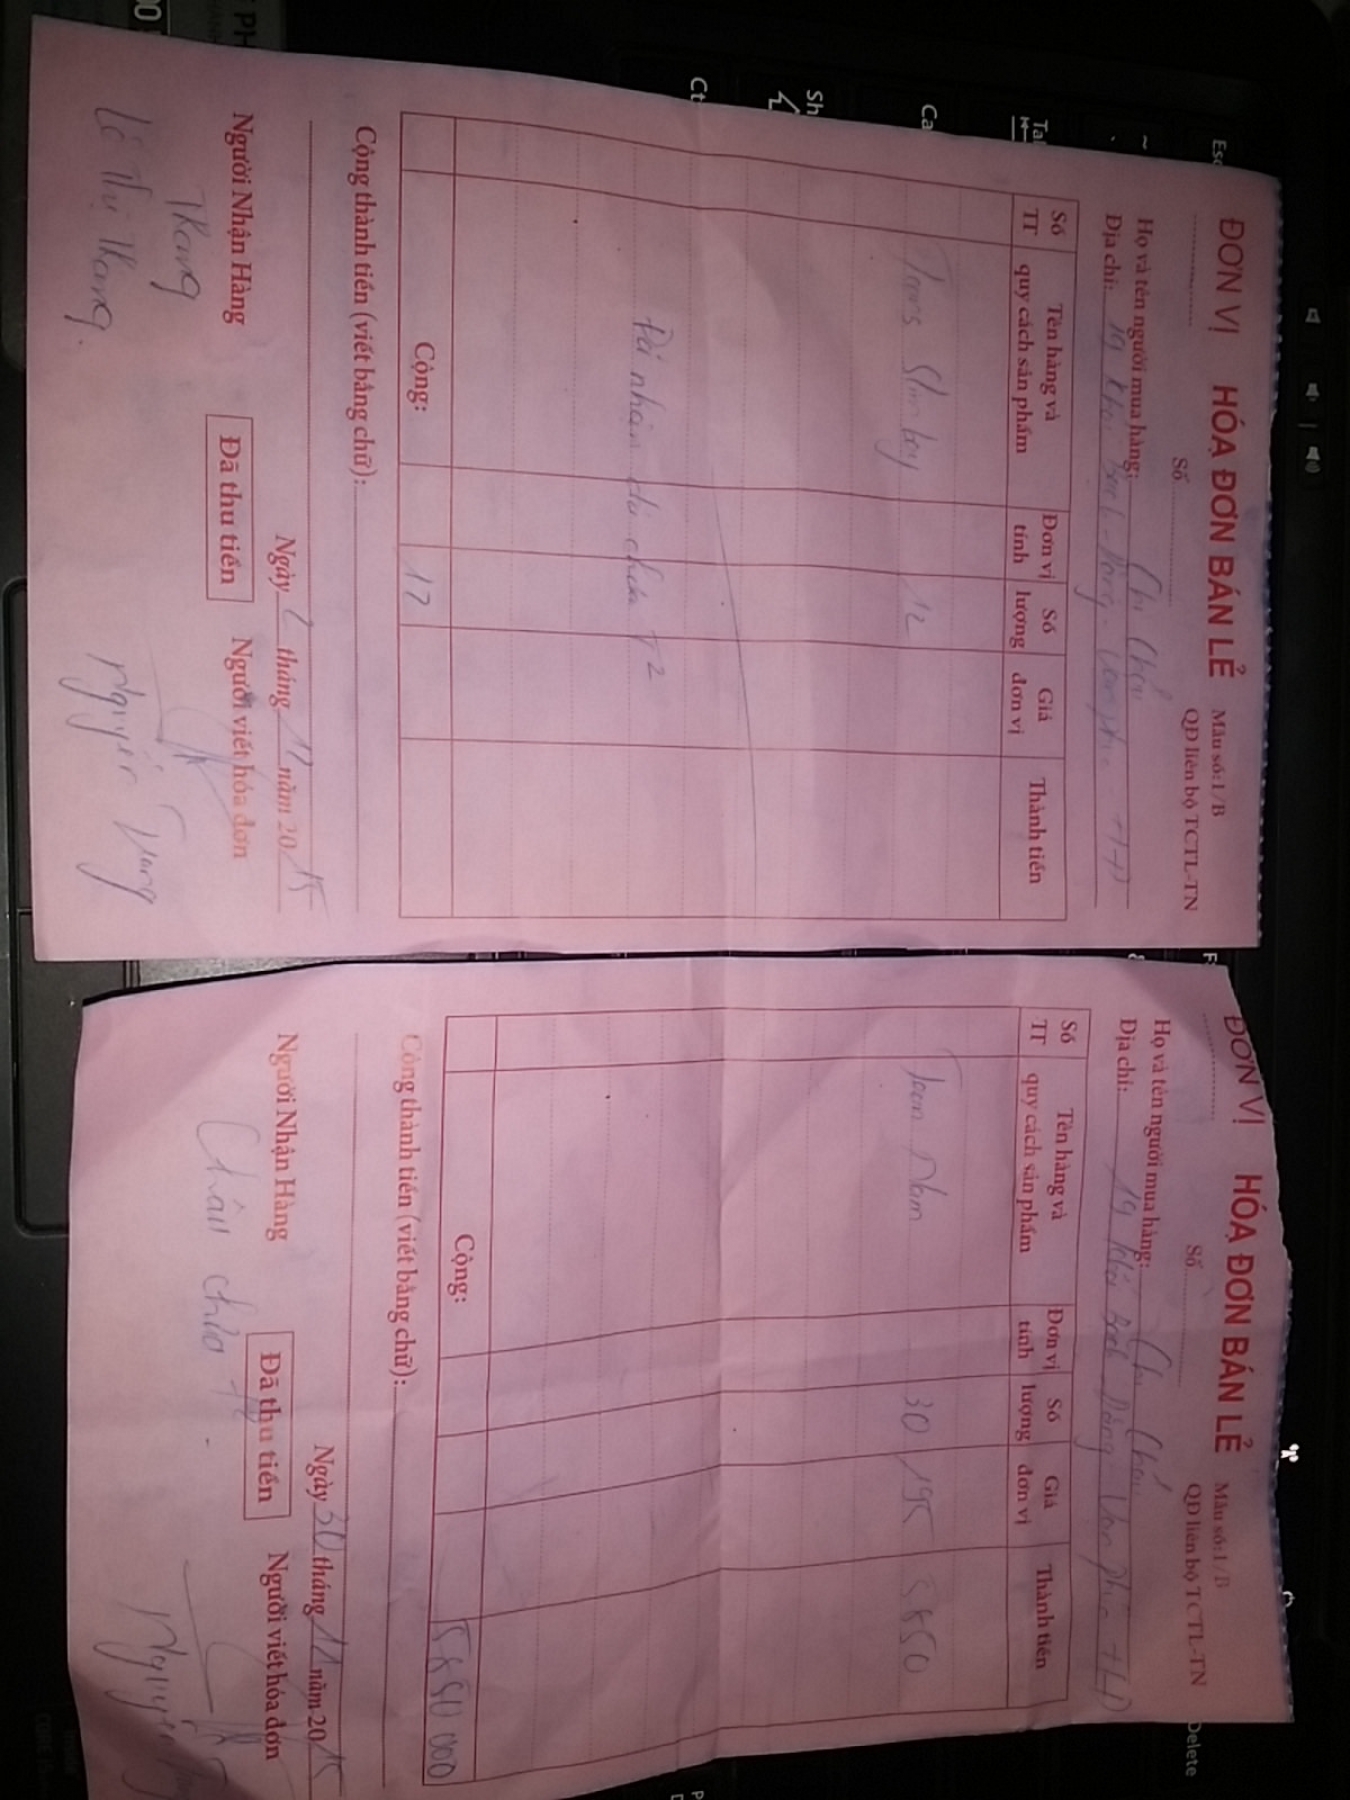 ĐƠN VỊ HÓA ĐƠN BÁN LẺ Mẫu số:1/B
Số QĐ liên bộ TCTL-TN
Họ và tên người mua hàng: Chị Châu
Địa chỉ: 19
Số TT Tên hàng và quy cách sản phẩm Đơn vị tính Số lượng Giá đơn vị Thành tiền
12
Đã nhận đủ chưa T²
Cộng: 12
Cộng thành tiền (viết bằng chữ):
Ngày 2 tháng 12 năm 2015
Người Nhận Hàng Đã thu tiền Người viết hóa đơn
Thong
Lê Thị Thong. Nguyễn Trang
ĐƠN VỊ HÓA ĐƠN BÁN LẺ Mẫu số:1/B
Số QĐ liên bộ TCTL-TN
Họ và tên người mua hàng: Chị Châu
Địa chỉ: 19
Số TT Tên hàng và quy cách sản phẩm Đơn vị tính Số lượng Giá đơn vị Thành tiền
Jean Nam 30 195 5850
Cộng: 5850 000
Cộng thành tiền (viết bằng chữ):
Ngày 30 tháng 11 năm 2015
Người Nhận Hàng Đã thu tiền Người viết hóa đơn
Châu chưa
Nguyễn
Esc
Tab
Ca
Sh
Ct
Delete